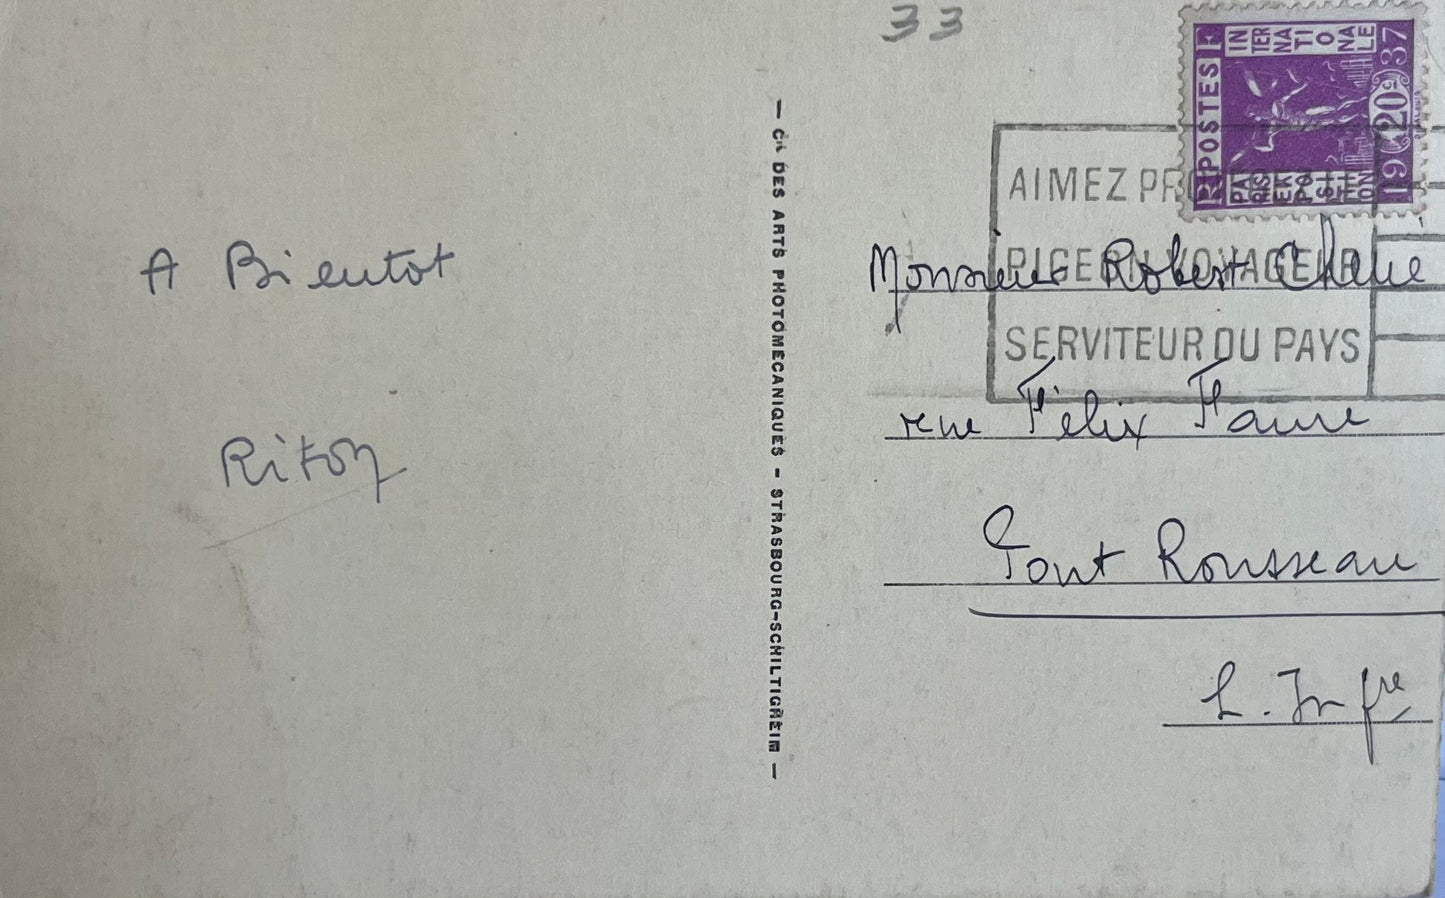 33
RF POSTES
PARIS EXPOSITION
INTERNATIONALE
1937
20c
AIMEZ PRO
PIGEON VOYAGEUR
SERVITEUR DU PAYS
A Bientot
Riton
— Cie DES ARTS PHOTOMECANIQUES - STRASBOURG-SCHILTIGHEIM —
Monsieur Robert
rue Félix Faure
Pont Rousseau
L. Infre